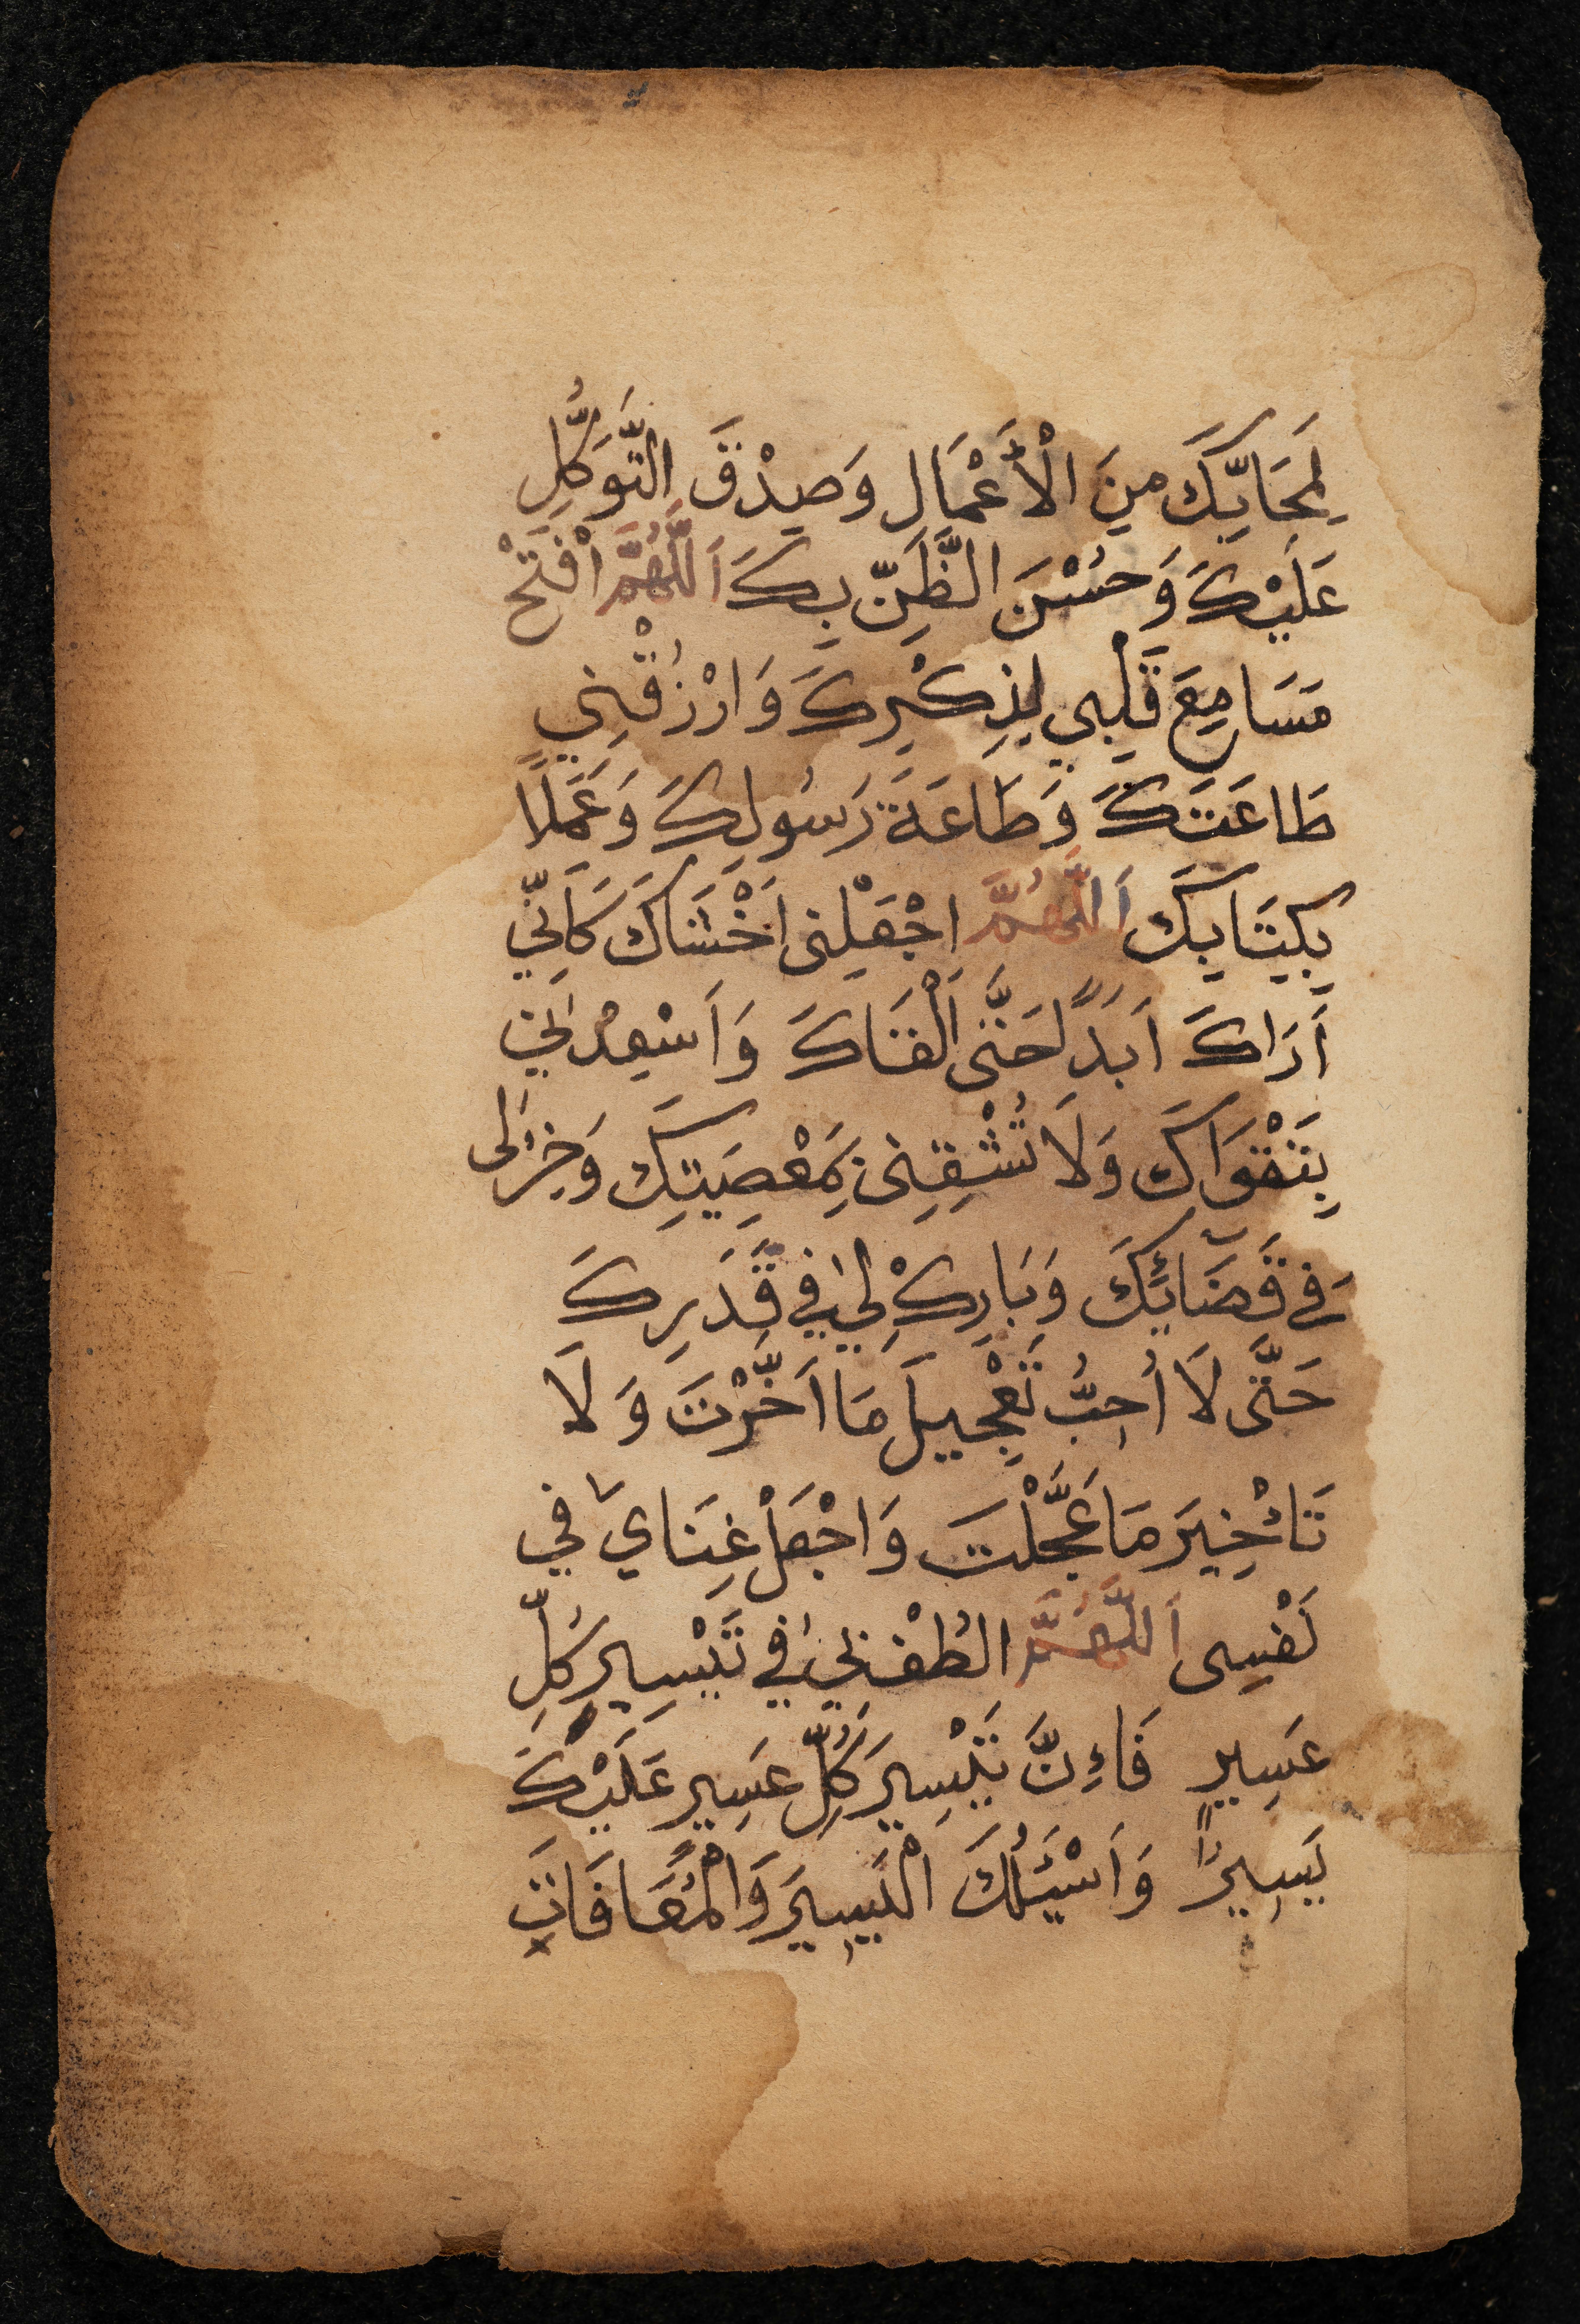 لِمَحَابِّكَ مِنَ الْأَعْمَالِ وَصِدْقَ التَّوَكُّلِ
عَلَيْكَ وَحُسْنَ الظَّنِّ بِكَ اَللَّهُمَّ افْتَحْ
مَسَامِعَ قَلْبِي لِذِكْرِكَ وَارْزُقْنِي
طَاعَتَكَ وَطَاعَةَ رَسُولِكَ وَعَمَلًا
بِكِتَابِكَ اَللَّهُمَّ اجْعَلْنِى اَخْشَاكَ كَاَنِّي
اَرَاكَ اَبَدًا حَتَّى اَلْقَاكَ وَاَسْعِدْنِي
بِتَقْوَاكَ وَلَا تُشْقِنِى بِمَعْصِيَتِكَ وَخِرْلِى
فِي قَضَآئِكَ وَبَارِكْ لِي فِي قَدَرِكَ
حَتَّى لَا اُحِبُّ تَعْجِيلَ مَا اَخَّرْتَ وَلَا
تَائْخِيرَ مَا عَجَّلْتَ وَاجْعَلْ غِنَايَ فِي
نَفْسِى اَللَّهُمَّ الْطُفْ بِي فِي تَيْسِيرِ كُلِّ
عَسِيرٍ فَاءِنَّ تَيْسِيرَ كُلِّ عَسِيرٍ عَلَيْكَ
يَسِيرًا وَاَسْئَلُكَ الْيَسِيرَ وَالْمُعَافَاتَ